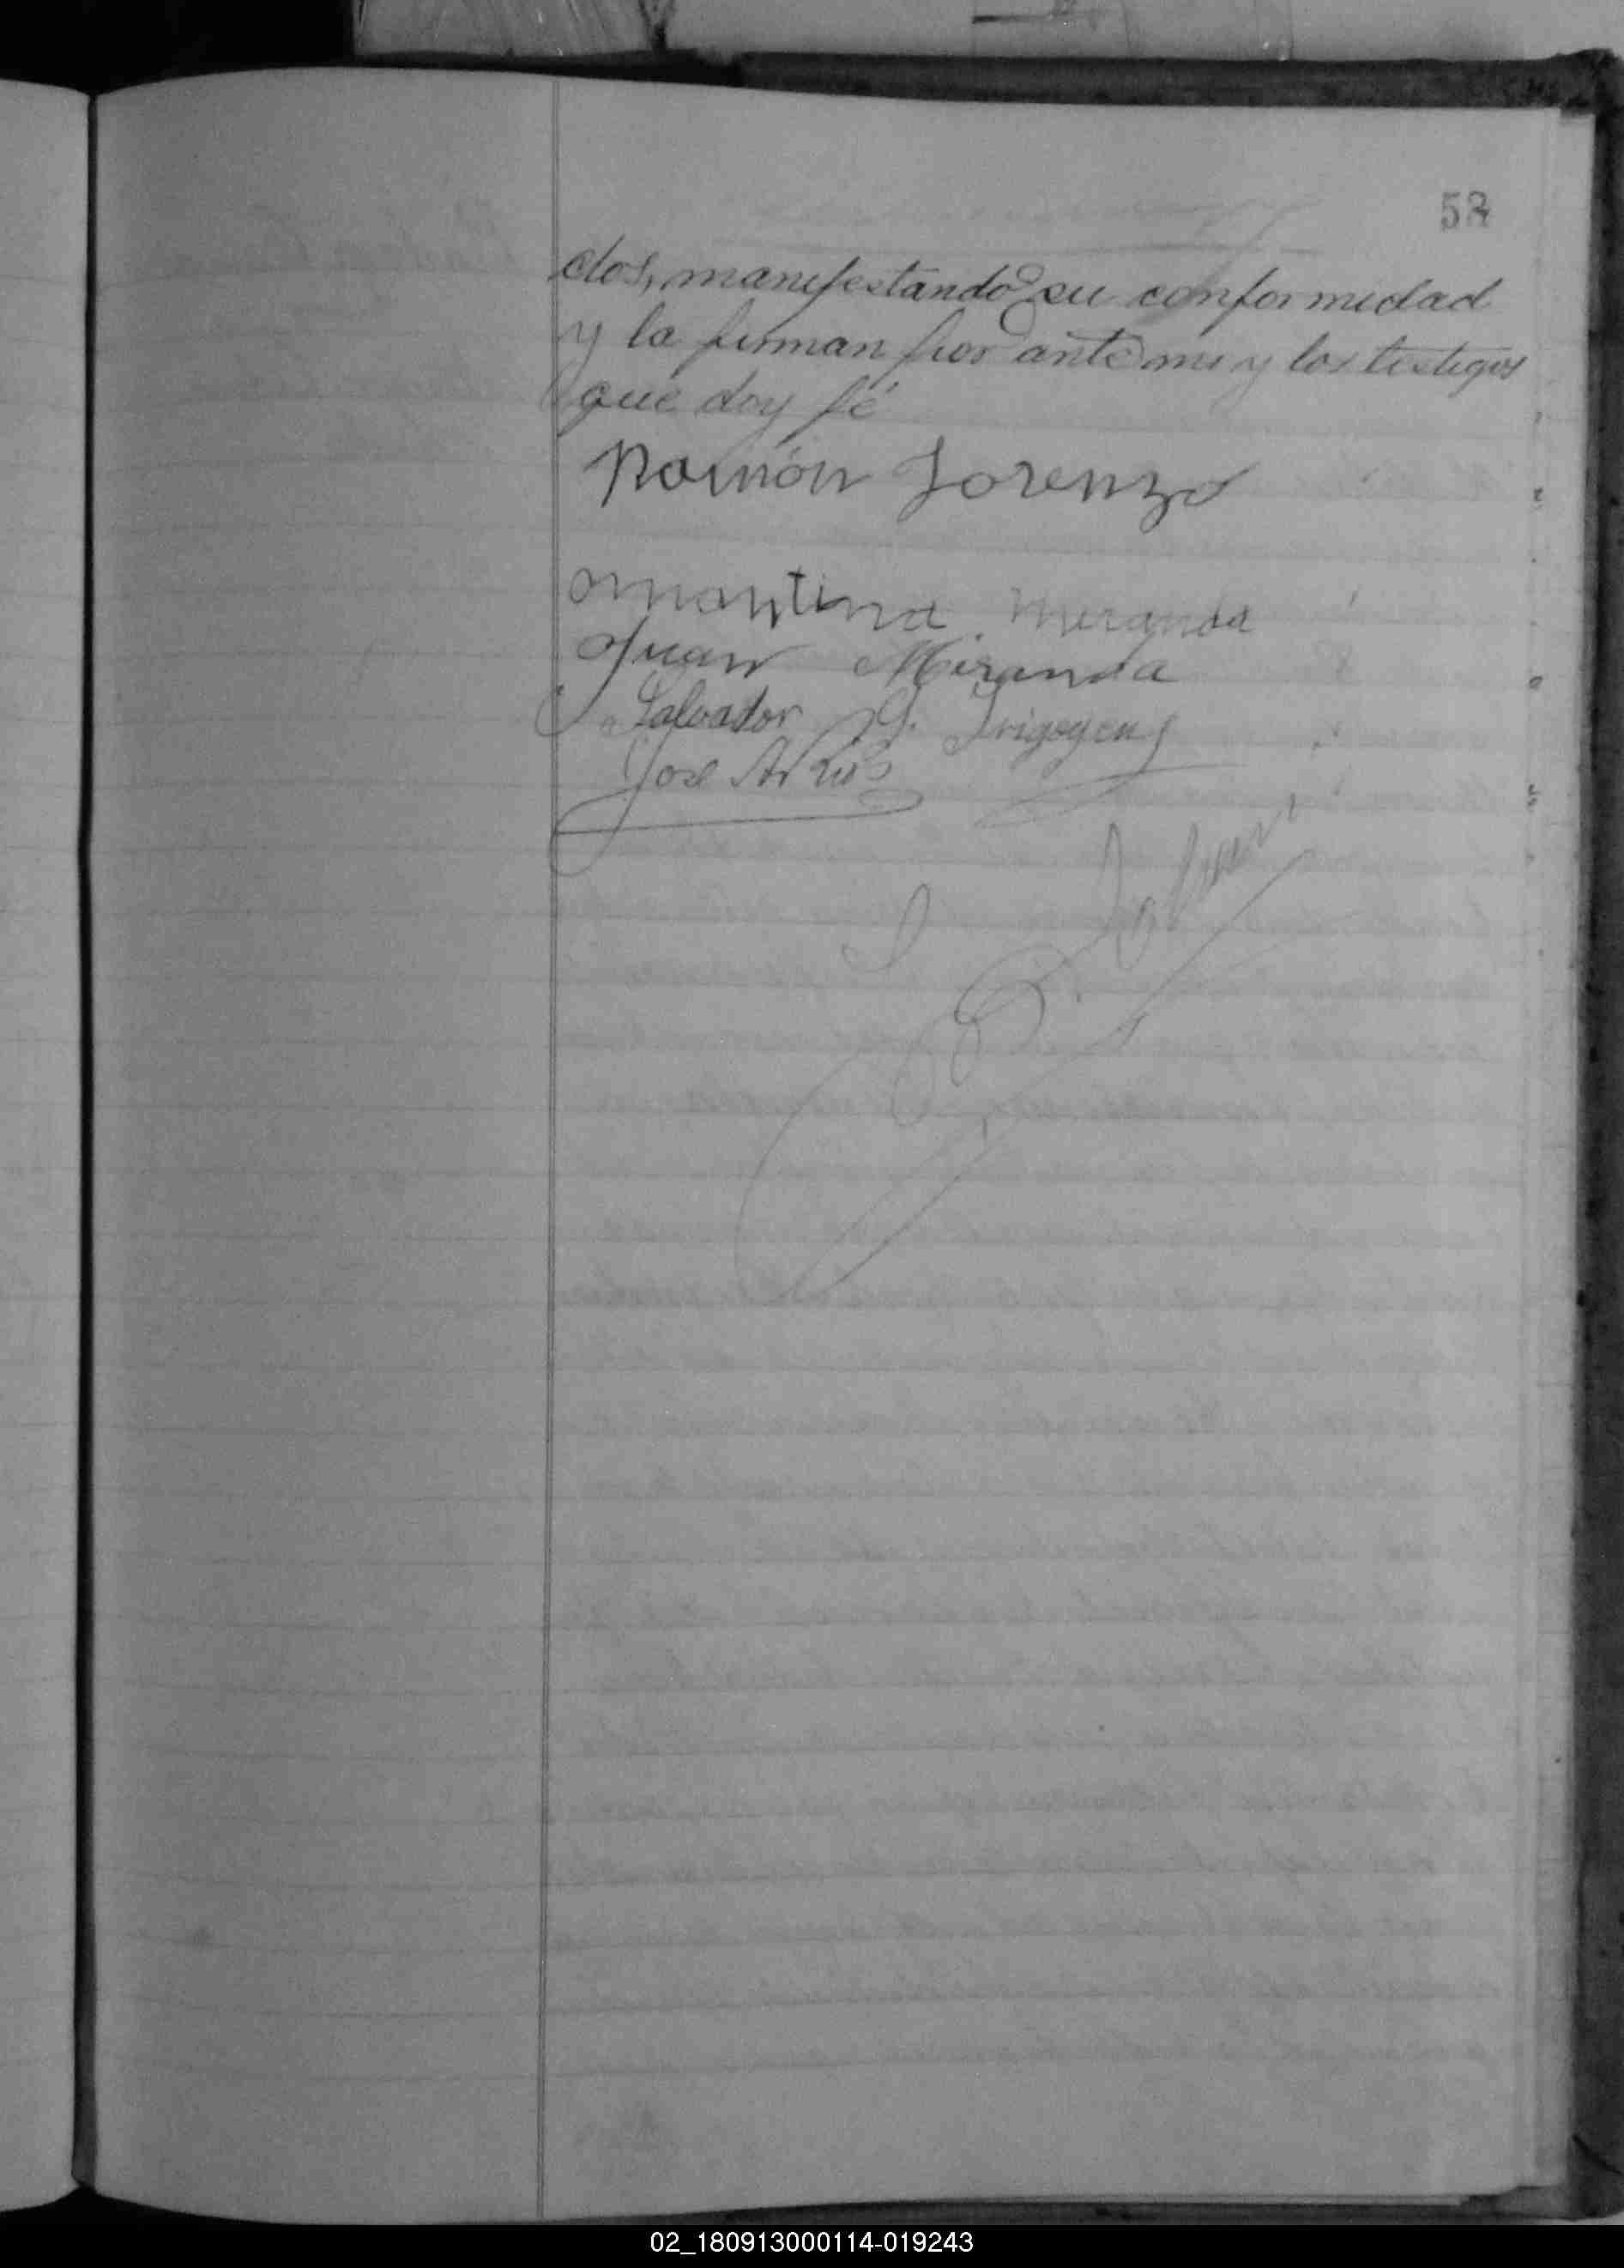 58
dos, manifestando su conformidad
y la firman por ante mi y los testigos
que doy fé
Ramón Lorenzo
Martina Miranda
Juan Miranda
Salvador G. Irigoyen
José A. Rios
02_180913000114-019243